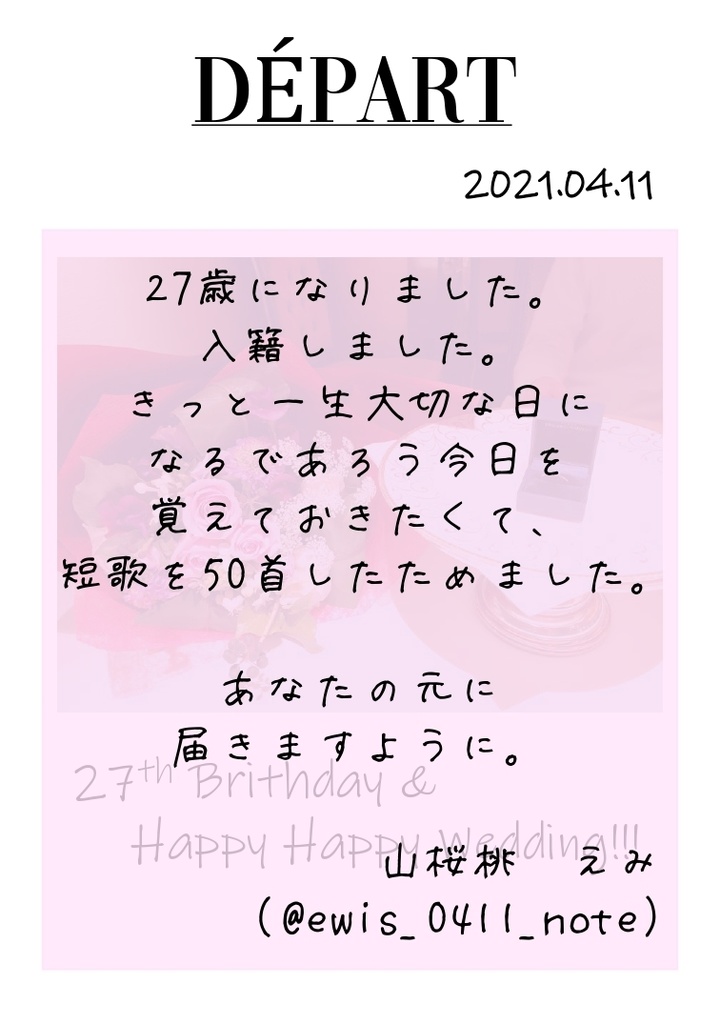 DÉPART
2021.04.11
27歳になりました。
入籍しました。
きっと一生大切な日に
なるであろう今日を
覚えておきたくて、
短歌を50首したためました。
あなたの元に
届きますように。
27th Brithday &
Happy Happy Wedding!!!
山桜桃　えみ
(@ewis_0411_note)